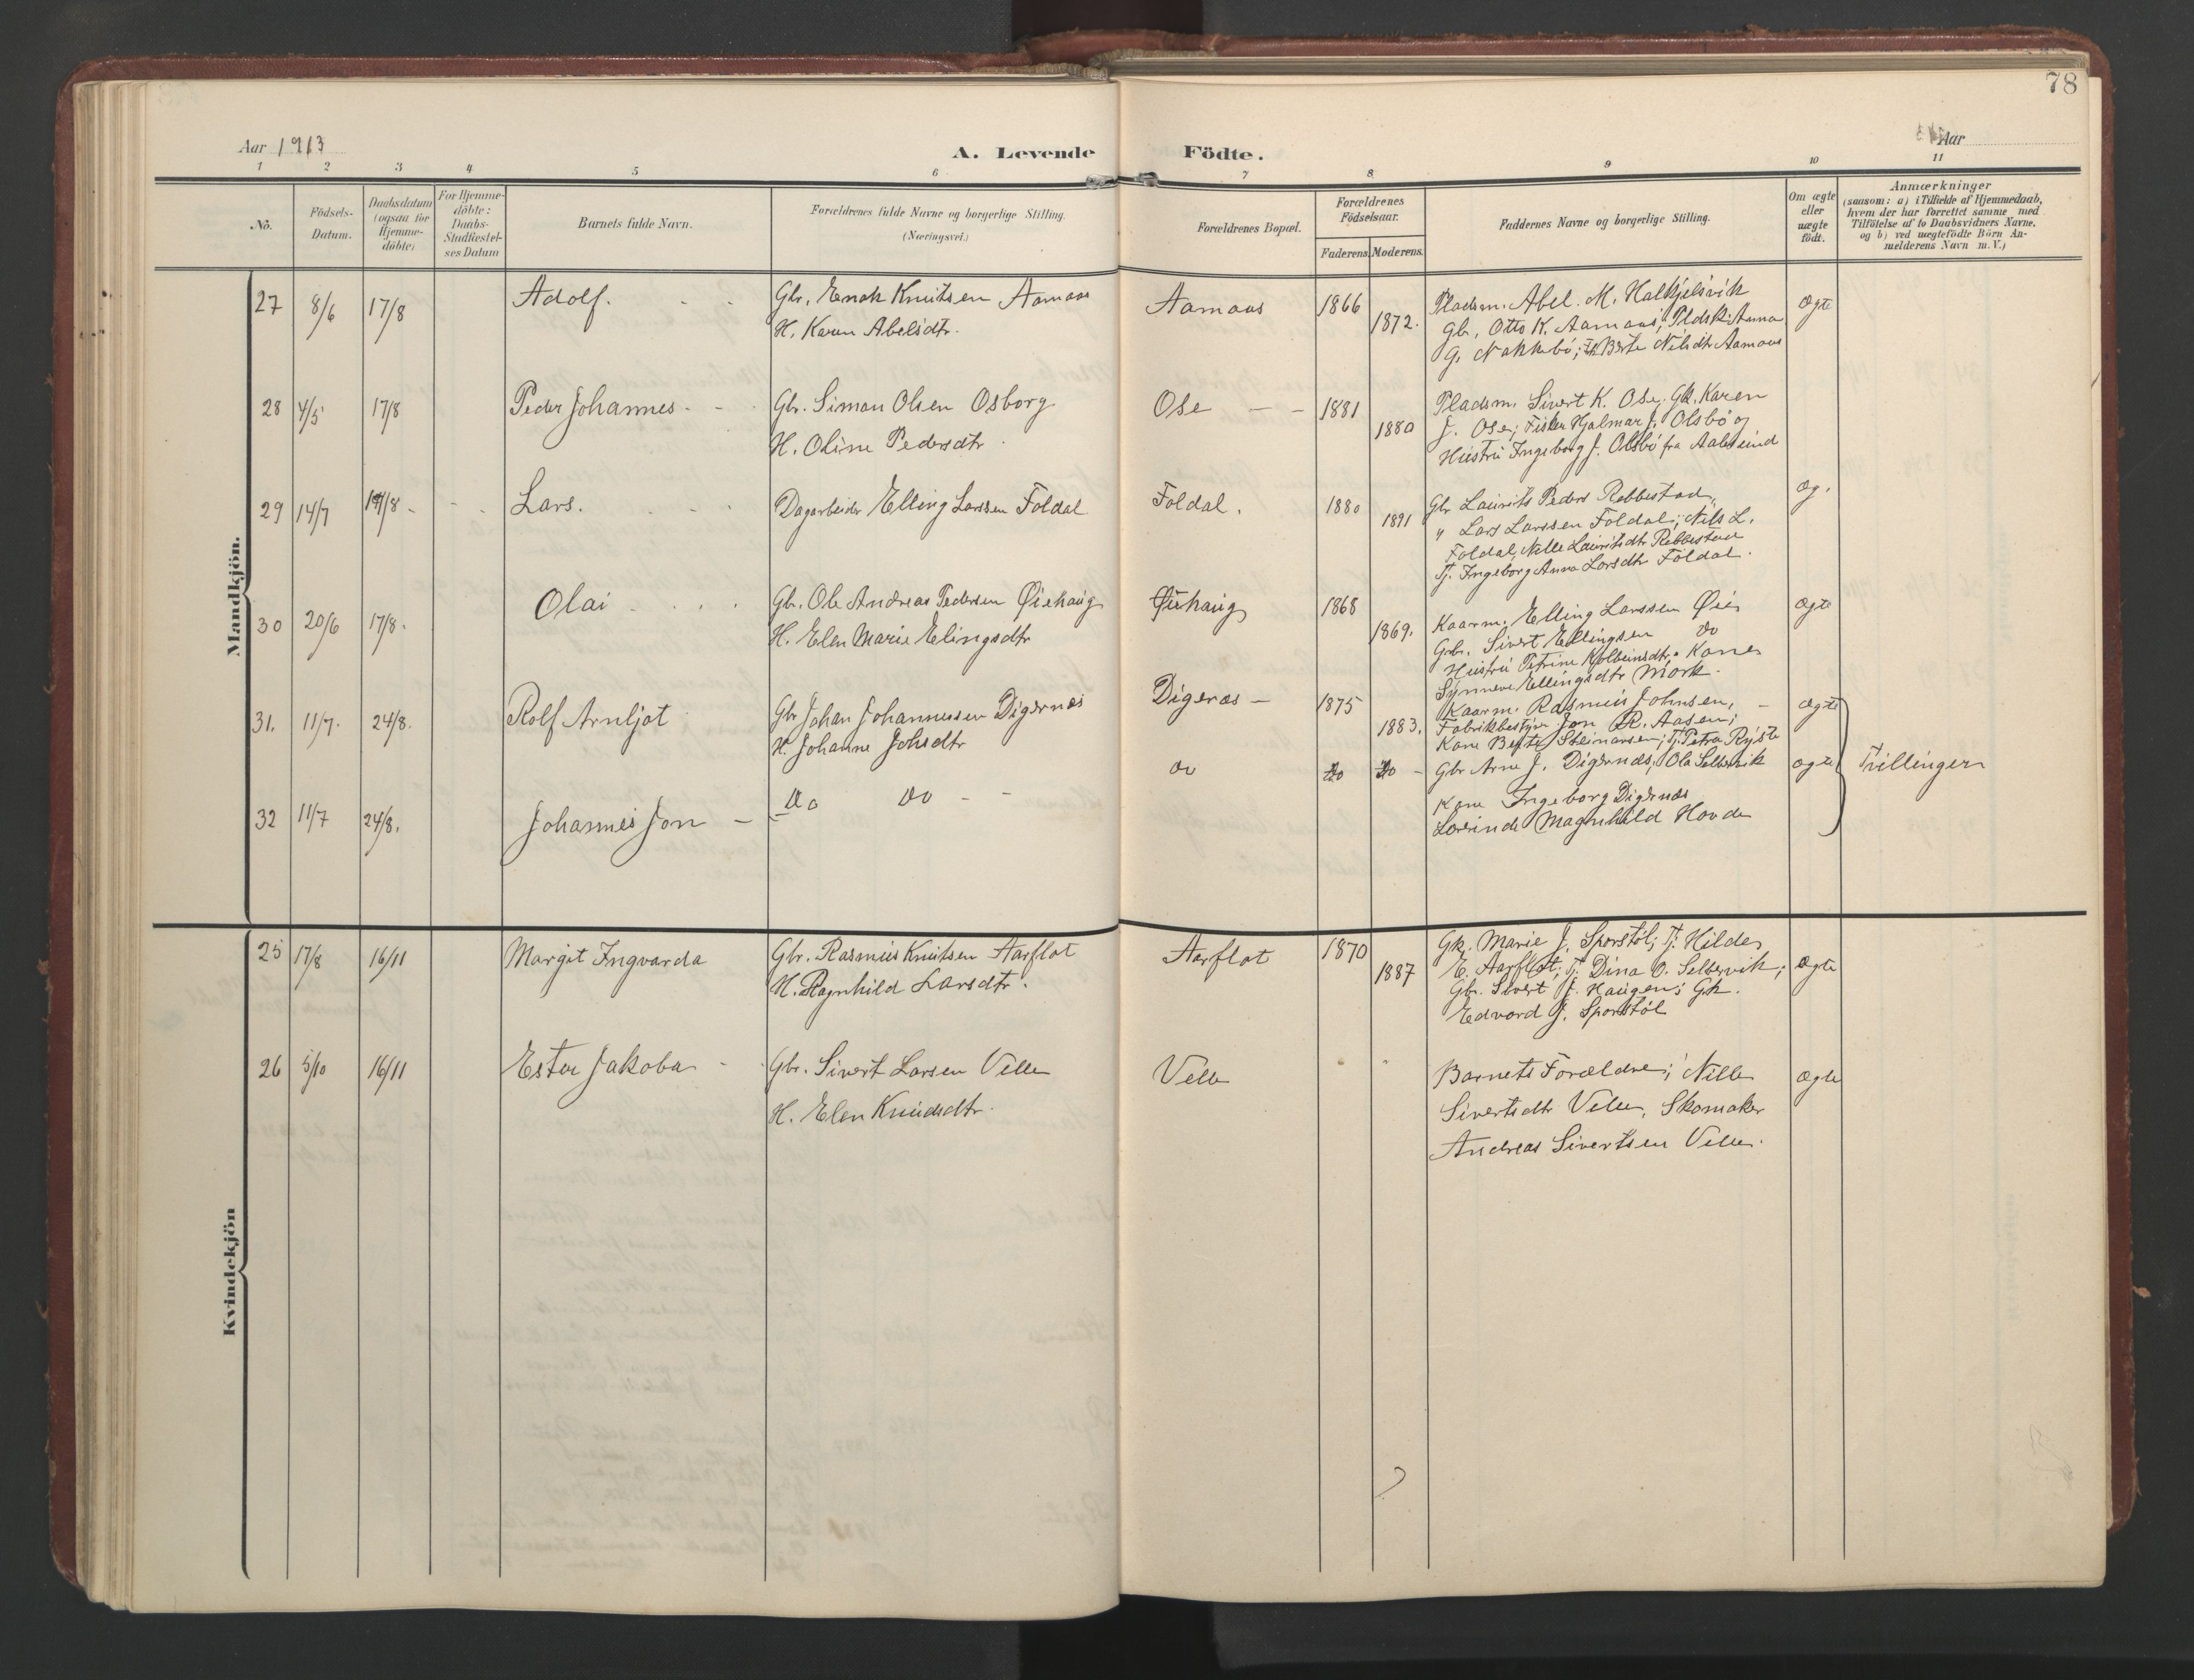 78
Aar 1913
A. Levende Födte.
Aar
1 2 3 4 5 6 7 8 9 10 11
No.
Födsels-
Datum.
Daabsdatum
(ogsaa for
Hjemme-
döbte)
For Hjemme-
döbte:
Daabs-
Stadfæstel-
ses Datum
Barnets fulde Navn.
Forældrenes fulde Navne og borgerlige Stilling.
(Næringsvei.)
Forældrenes Bopæl.
Forældrenes
Födselsaar.
Faderens. Moderens.
Faddernes Navne og borgerlige Stilling.
Om ægte
eller
uægte
födt.
Anmærkninger
(saasom: a) i Tilfælde af Hjemmedaab,
hvem der har forrettet samme med
Tilföielse af to Daabsvidners Navne,
og b) ved uægtefödte Börn An-
melderens Navn m. V.)
Mandkjön.
27 8/6 17/8 Adolf.
Gbr. Enok Knutsen Aamaas
H. Karen Abelsdtr.
Aamaas 1866
1872.
Pladsm. Abel M. Halkjelsvik
Gbr. Otto K. Aamaas; Pldsk. Anna
G. Nakkebö; Berte Nilsdtr Aamaas
Ægte
28 4/5 17/8 Peder Johannes
Gbr. Simon Olsen Osborg
H. Oline Pedersdtr
Ose 1881
1880
Pladsm. Sivert K. Ose; Gk. Karen
J. Ose; Fisker Hjalmar J. Olsbö og
Hustru Ingeborg J. Olsbö fra Aalesund
29 14/7 17/8 Lars.
Dagarbeider Elling Larssen Foldal
Foldal. 1880
1891
Gbr Laurits Peders Rebbestad,
" Lars Larssen Foldal; Nils L.
Foldal, Nille Lauritsdtr Rebbestad
Tj. Ingeborg Anna Larsdtr Foldal.
Æg.
30 20/6 17/8. Olai
Gbr. Ole Andreas Pedersen Øiehaug
H. Elen Marie Elingsdtr
Øiehaug 1868
1869.
Kaarm. Elling Larssen Øie
Gbr. Sivert Ellingsen Do
Hustru Petrine Kolbeinsdtr, Kone
Synneve Ellingsdtr Mork.
Ægte
31. 11/7. 24/8. Rolf Arnljot
Gbr Johan Johannessen Digernæs
H. Johanne Johsdtr
Digeræs 1875
1883.
Kaarm. Rasmus Johnsen,
Fabrikbestyrer Jon R. Aasen;
Kone Berte Steinarsen; Tj. Petra Ryste
Ægte
32 11/7 24/8. Johannes Jon
Do Do
Do Do Do
Gbr Arne J. Digernæs; Ola Selbervik
Kone Ingeborg Digernæs
Magnhild Hovde
Ægte
Tvillinger
Kvindekjön
25 17/8 16/11 Margit Ingvarda
Gbr. Rasmus Knutsen Aarflot
H. Ragnhild Larsdtr.
Aarflot 1870
1887
Gk. Marie J. Sporstöl; Tj. Hilde
E. Aarflot; Tj. Dina O. Selbervik;
Gbr. Sivert J. Haugen; Gk.
Edvard J. Sporstöl
Ægte
26 5/10 16/11 Ester Jakoba
Gbr. Sivert Larsen Velle
H. Elen Knudsdtr.
Velle
Barnets Forældre; Nille
Sivertsdtr Velle, Skomaker
Andreas Sivertsen Velle.
Ægte